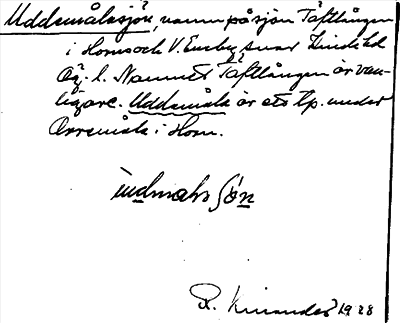 Uddsmålasjön, namn på sjön Täftlången
i Horns och V. Eneby snar Kinds hd
Ög. l. Namnet Täftlången är van-
ligare. Uddsmåla är ett tp. under
i Horn.
sjön
R. Kinander 1928